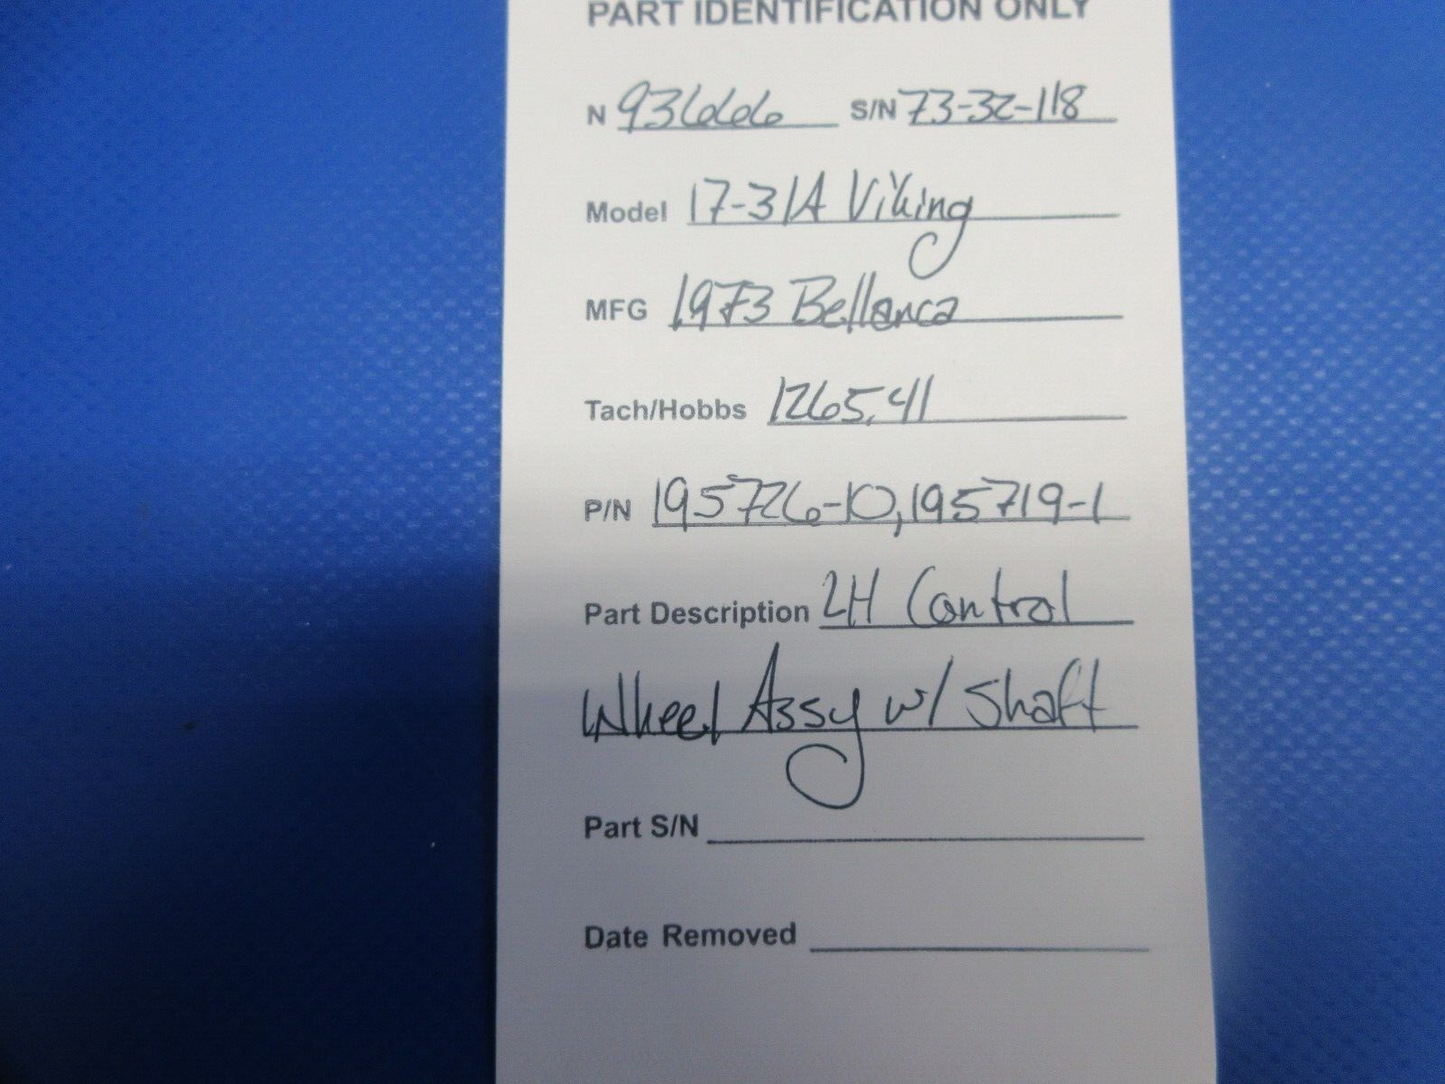 PART IDENTIFICATION ONLY
N 93666 S/N 73-32-118
Model 17-31A Viking
MFG 1973 Bellanca
Tach/Hobbs 1265.41
P/N 195726-10, 195719-1
Part Description LH Control
Wheel Assy w/ Shaft
Part S/N
Date Removed